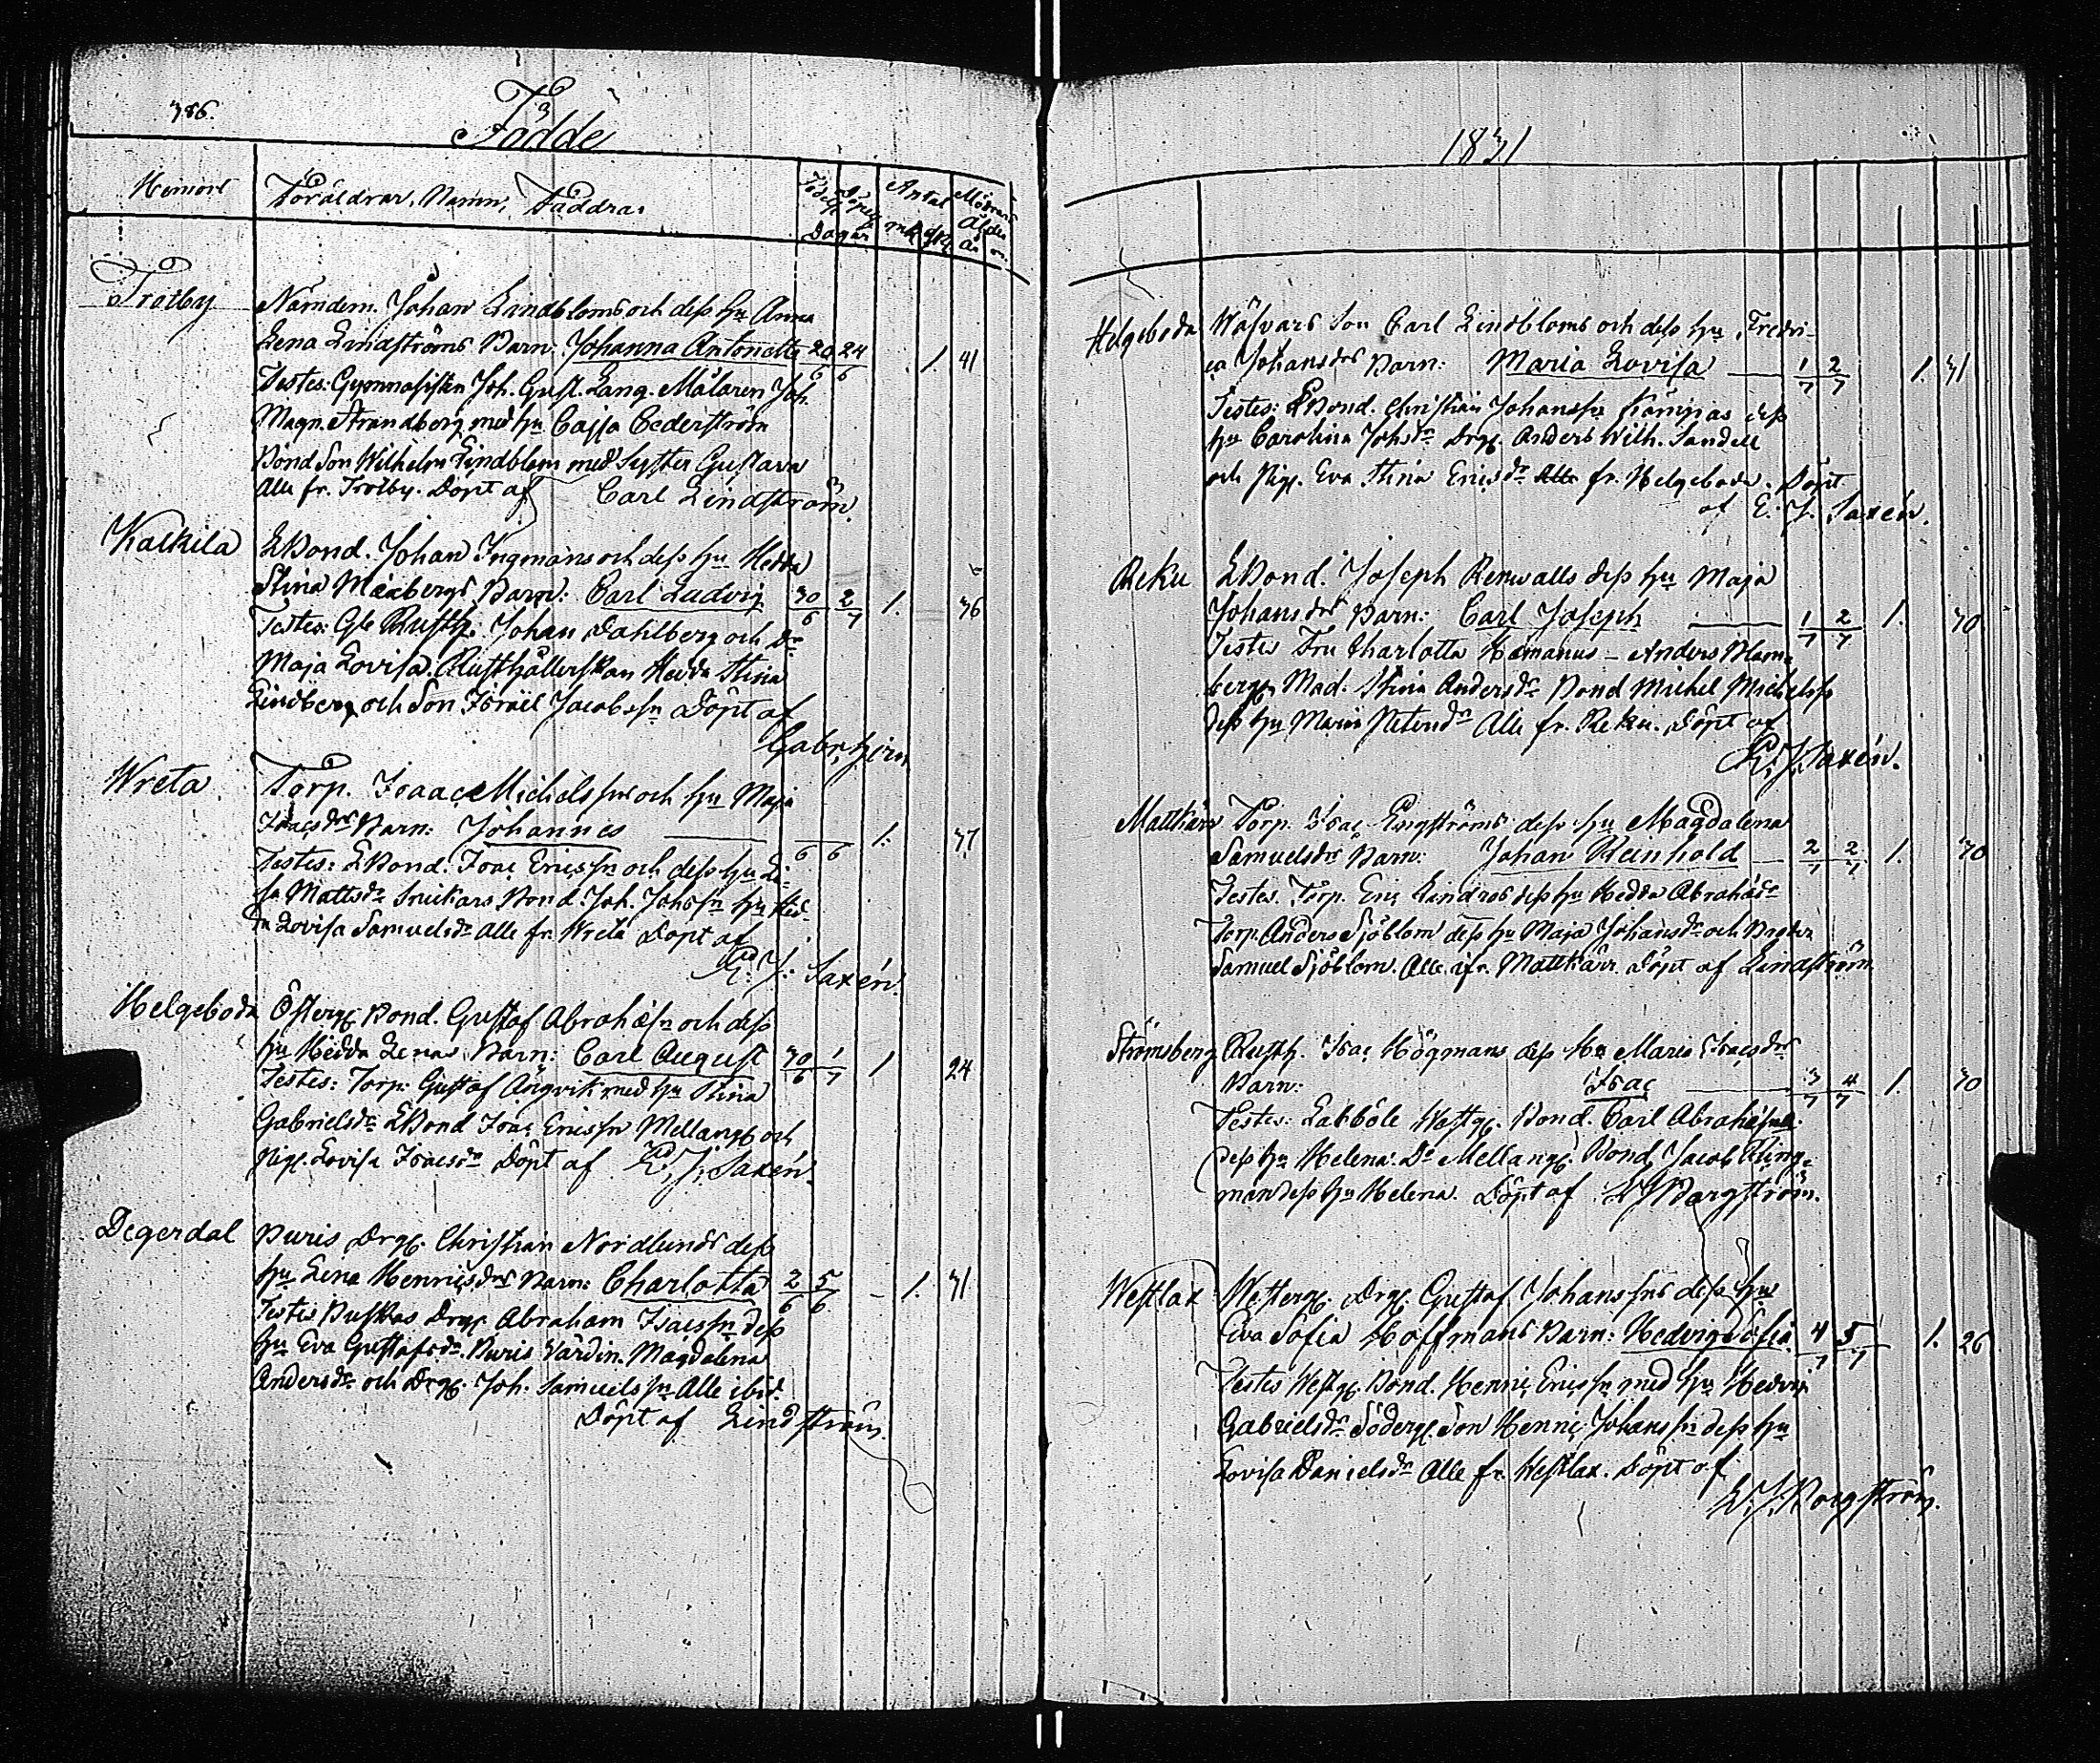 386.
Födde
Hemort Föräldrar, Namn, Faddrar
Födelse Döpelse Dagar Antal mk qk Mödrars Ålder år
Trotby
Nämdem. Johan Lindbloms och dess hu Anna
Lena Lindströms Barn: Johanna Antonette 20/6 24/6 1. 41
Testes: Gymnasisten Joh. Gust. Lang. Målaren Joh.
Magn. Strandberg med hu Cajsa Cederström
Bond Son Wilhelm Lindblom med Syster Gustava
Alle fr. Trotby. Döpt af Carl Lindström.
Kalkila LBond. Johan Ingmans och dess hu Hedda
Stina Maxbergs Barn: Carl Ludvig 30/6 2/7 1. 36
Testes: Gle Rusth. Johan Dahlberg och Dr
Maja Lovisa. Rusthållerskan Hedda Stina
Lindberg och Son Israel Jacobssn Döpt af
Gabr. hjörn
Wreta Torp. Isaac Michelssns och hu Maja
Isacsdrs Barn: Johannes /6 /6 1. 37
Testes: LBond. Isac Ericssn och dess hu Li-
sa Mattsdr Snickars Bond Joh. Johssn hu Hed-
da Lovisa Samuelsdr alle fr. Wreta Döpt af
E. J. Saxén.
Helgeboda Österg. Bond. Gustaf Abrahassn och dess
hu Hedda Lenas Barn: Carl August 30/6 1/7 1 24
Testes: Torp: Gustaf Ängvik med hu Stina
Gabrielsdr LBond Isac Ericssn Mellang. och
Pig. Lovisa Isacsdr Döpt af E. J. Saxén.
Degerdal Buris Drg. Christian Nordlunds dess
hu Lena Henricsdrs Barn: Charlotta 2/6 5/6 1. 31
Testes Buskas Drg. Abraham Isacssn dess
hu Eva Gustafsdr. Buris Värdin. Magdalena
Andersdr och Drg. Joh. Samuelssn Alle ibid.
Döpt af Lindström.
1831
Helgeboda Wäfvars Son Carl Lindbloms och dess hu Fredri-
ca Johansdrs Barn: Maria Lovisa 1/7 2/7 1. 31
Testes: LBond. Christian Johanssn Kämpas dess
hu Carolina Johsdr Drg. Anders Wilh. Sandell
och Pig. Eva Stina Ericsdr Alle fr. Helgeboda. Döpt
af E. J. Saxén.
Reku LBond. Joseph Renwalls dess hu Maja
Johansdrs Barn: Carl Joseph 1/7 2/7 1. 30
Testes Fru Charlotta Homanus - Anders Blom-
berg, Mad. Stina Andersdr Bond Michel Michelssn
dess hu Maria Petersdr Alle fr. Reku. Döpt af
E. J. Saxén.
Mattkärr Torp. Isac Engströms dess hu Magdalena
Samuelsdrs Barn: Johan Reinhold 2/7 2/7 1. 30
Testes. Torp. Eric Lindros dess hu Hedda Abrahadr
Torp. Anders Sjöblom dess hu Maja Johansdr och Broder
Samuel Sjöblom. Alle ifr. Mattkärr. Döpt af Lindström
Strömsberg Rusth. Isac Högmans dess hu Maria Isacsdrs
Barn: Isac 3/7 4/7 1. 30
Testes: Labböle Westg. Bond. Carl Abrahassn
dess hu Helena. Dr Mellang. Bond Jacob Kling-
man dess hu Helena. Döpt af E J Borgström.
Westlax Westerg. Drg. Gustaf Johanssns dess hu
Eva Sofia Hoffmans Barn: Hedvig Sofia 4/7 5/7 1. 26
Testes Westg. Bond. Henric Ericssn med hu Hedvig
Gabrielsdr Söderg. Son Henric Johanssn dess hu
Lovisa Danielsdr Alle fr. Westlax. Döpt af
E. J. Borgström.